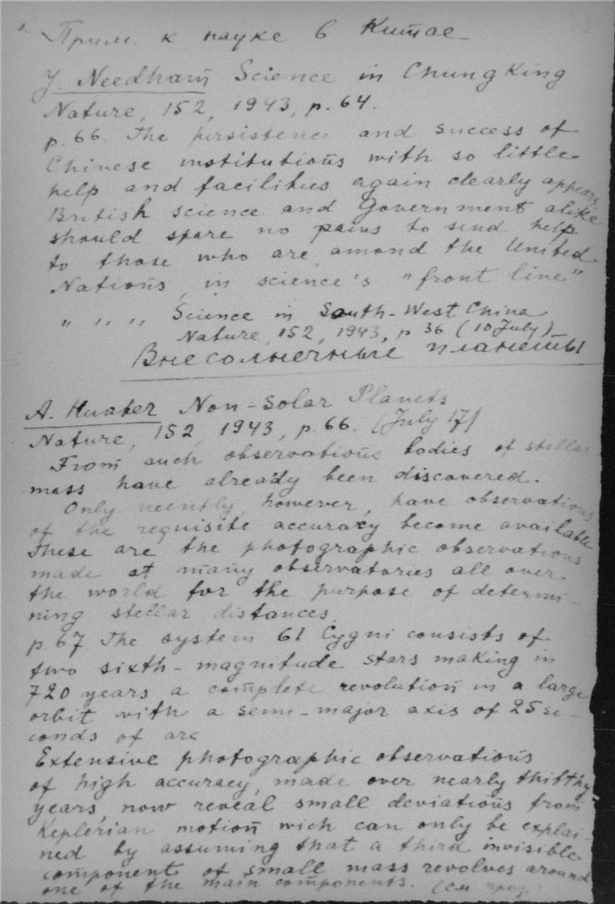 Прим. к науке в Китае
J. Needham Science in Chungking
Nature, 152, 1943, p. 64.
p. 66. The persistence and success of
Chinese institutions with so little
help and facilities again clearly appears.
British science and Government alike
should spare no pains to send help
to those who are among the United
Nations, in science's "front line"
" " " Science in South-West China
Nature, 152, 1943, p 36 (10 July)
Внесолнечные планеты
A. Hunter Non-Solar Planets
Nature, 152, 1943, p. 66. (July 17)
From such observations bodies of stellar
mass have already been discovered.
Only recently, however, have observations
of the requisite accuracy become available
These are the photographic observations
made at many observatories all over
the world for the purpose of determi-
ning stellar distances.
p 67. The system 61 Cygni consists of
two sixth-magnitude stars making in
720 years a complete revolution in a large
orbit with a semi-major axis of 25 se-
conds of arc
Extensive photographic observations
of high accuracy, made over nearly thithy
years, now reveal small deviations from
Keplerian motion wich can only be explai-
ned by assuming that a third invisible
component of small mass revolves around
one of the main components. (см.